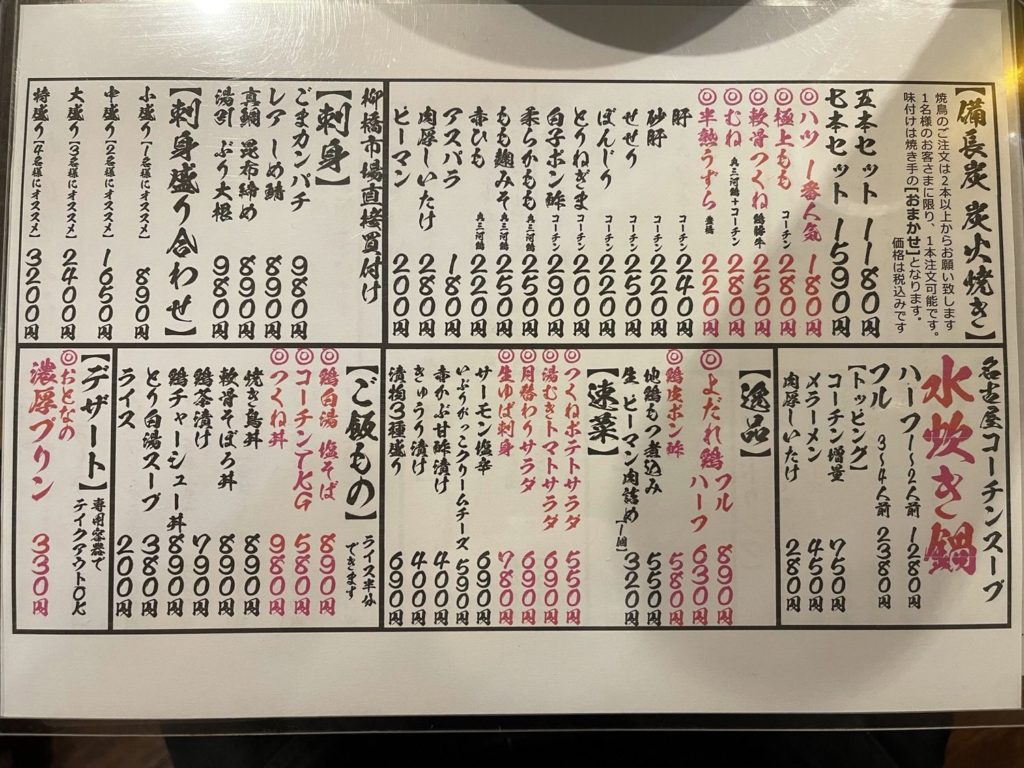 【備長炭 炭火焼き】
焼鳥のご注文は2本以上からお願い致します
1名様のお客さまに限り、1本注文可能です。
味付けは焼き手の【おまかせ】となります。
価格は税込みです
五本セット 1180円
七本セット 1590円
◎ハツ 一番人気 180円
◎極上もも コーチン 280円
◎軟骨つくね 鶏豚牛 250円
◎むね 奥三河鶏+コーチン 280円
◎半熟うずら 豊橋 220円
肝 コーチン 240円
砂肝 コーチン 220円
せせり コーチン 250円
ぼんじり コーチン 220円
とりねぎま コーチン 250円
白子ポン酢 コーチン 280円
柔らかもも 奥三河鶏 250円
もも麹みそ 奥三河鶏 250円
赤ひも 奥三河鶏 220円
アスパラ 180円
肉厚しいたけ 280円
ピーマン 200円
柳橋市場直接買付け
【刺身】
ごまカンパチ 980円
レア しめ鯖 890円
真鯛 昆布締め 890円
湯引 ぶり大根 980円
【刺身盛り合わせ】
小盛り【1名様にオススメ】 890円
中盛り【2名様にオススメ】 1650円
大盛り【3名様にオススメ】 2400円
特盛り【4名様にオススメ】 3200円
名古屋コーチンスープ
水炊き鍋
ハーフ 〜2人前 1280円
フル 3〜4人前 2380円
【トッピング】
コーチン増量 750円
メラーメン 450円
肉厚しいたけ 280円
【逸品】
◎よだれ鶏 フル 890円
ハーフ 630円
◎鶏皮ポン酢 580円
地鶏もつ煮込み 550円
生ピーマン肉詰め【1個】 320円
【速菜】
◎つくねポテトサラダ 550円
◎湯むきトマトサラダ 650円
◎月替わりサラダ 690円
◎生ゆば刺身 780円
サーモン塩辛 690円
いぶりがっこクリームチーズ 590円
赤かぶ甘酢漬け 400円
きゅうり漬け 400円
漬物3種盛り 690円
【ご飯もの】
ライス半分
できます
◎鶏白湯 塩そば 890円
◎コーチンTKG 580円
◎つくね丼 980円
焼き鳥丼 890円
軟骨そぼろ丼 890円
鶏茶漬け 790円
鶏チャーシュー丼 890円
とり白湯スープ 380円
ライス 200円
【デザート】
専用容器で
テイクアウトOK
◎おとなの
濃厚プリン 330円